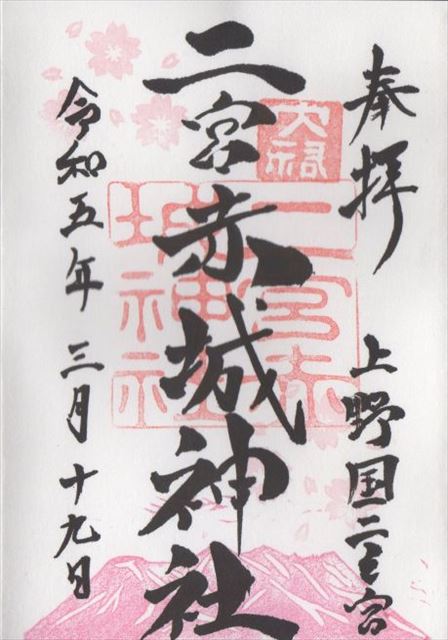 奉拝
上野国二之宮
二宮赤城神社
令和五年 三月 十九日
大祓
二宮赤
城神社